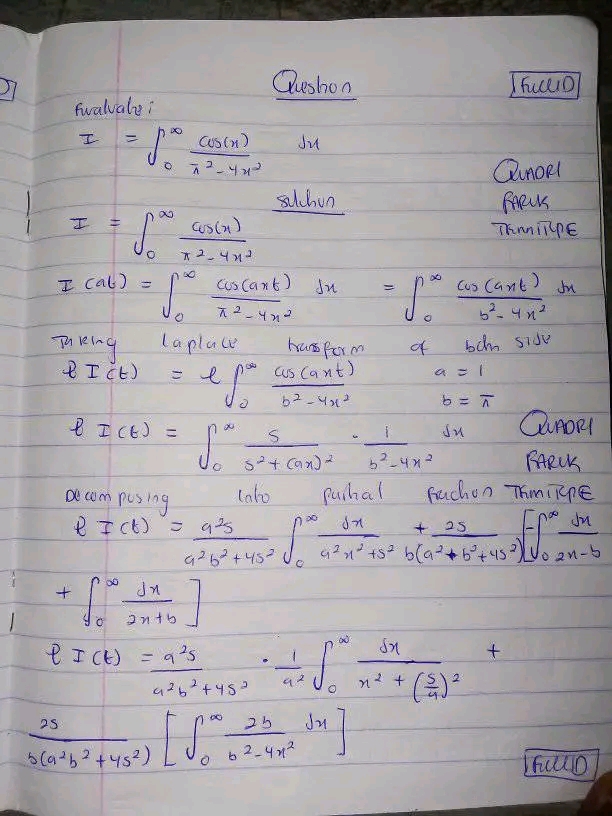 Question
FullID
Evaluate:
I = ∫₀^∞ cos(x)/(π² - 4x²) dx
QUADRI
FARUK
TEMITOPE
solution
I = ∫₀^∞ cos(x)/(π² - 4x²)
I(at) = ∫₀^∞ cos(axt)/(π² - 4x²) dx = ∫₀^∞ cos(axt)/(b² - 4x²) dx
Taking laplace transform of both side
ℓ I(t) = ℓ ∫₀^∞ cos(axt)/(b² - 4x²) a = 1
b = π
ℓ I(t) = ∫₀^∞ s/(s² + (ax)²) · 1/(b² - 4x²) dx
QUADRI
FARUK
Decomposing into partial fraction TEMITOPE
ℓ I(t) = a²s/(a²b² + 4s²) ∫₀^∞ dx/(a²x² + s²) + 2s/(b(a² + b² + 4s²)) [-∫₀^∞ dx/(2x - b)
+ ∫₀^∞ dx/(2x + b)]
ℓ I(t) = a²s/(a²b² + 4s²) · 1/a² ∫₀^∞ dx/(x² + (s/a)²) +
2s/(b(a²b² + 4s²)) [∫₀^∞ 2b/(b² - 4x²) dx]
FullID